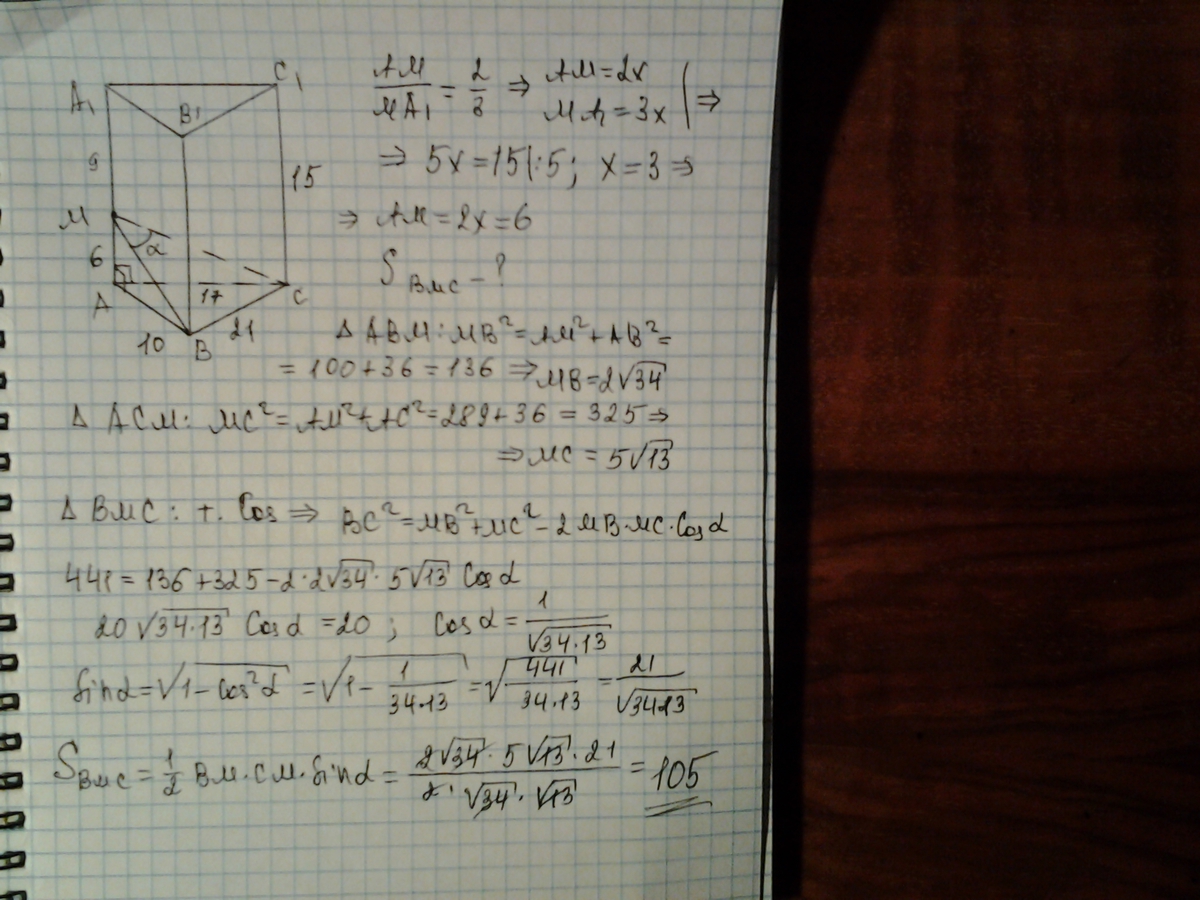 A₁ C₁ B₁
9 15
M α
6
A 17 C
10 B 21
AM/MA₁ = 2/3 ⇒ AM = 2x
MA₁ = 3x | ⇒
⇒ 5x = 15 |:5; x = 3 ⇒
⇒ AM = 2x = 6
S BMC - ?
Δ ABM: MB² = AM² + AB² =
= 100 + 36 = 136 ⇒ MB = 2√34
Δ ACM: MC² = AM² + AC² = 289 + 36 = 325 ⇒
⇒ MC = 5√13
Δ BMC: т. Cos ⇒ BC² = MB² + MC² - 2MB·MC·Cos α
441 = 136 + 325 - 2·2√34·5√13 Cos α
20√34·13 Cos α = 20; Cos α = 1/√34·13
Sin α = √1 - cos²α = √1 - 1/34·13 = √441/34·13 = 21/√34·13
S BMC = 1/2 BM·CM·Sin α = 2√34·5√13·21/2·√34·√13 = 105